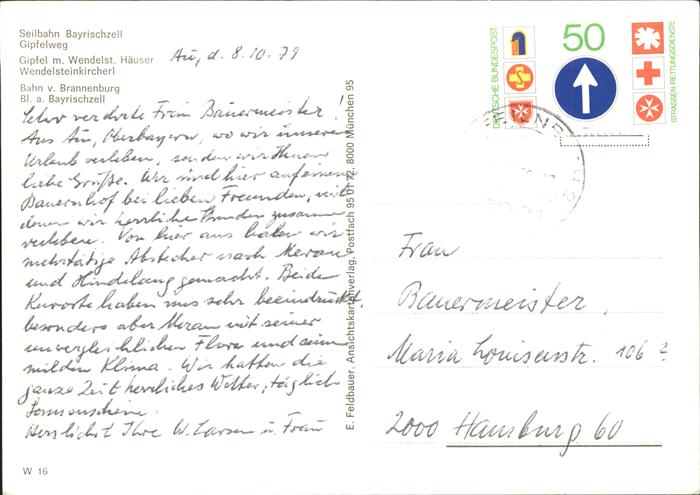 Seilbahn Bayrischzell
Gipfelweg
Gipfel m. Wendelst. Häuser
Wendelsteinkircherl
Bahn v. Brannenburg
Bl. a. Bayrischzell
Au, d. 8.10.79
Sehr verehrte Frau Bauermeister!
Aus Au, Oberbayern, wo wir unseren
Urlaub verleben, senden wir Ihnen
liebe Grüße. Wir sind hier auf einem
Bauernhof bei lieben Freunden, mit
denen wir herrliche Stunden zusamm
verleben. Von hier aus haben wir
mehrtätige Abstecher nach Meran
und Hindelang gemacht. Beide
Kurorte haben uns sehr beeindruckt,
besonders aber Meran mit seiner
unvergleichlichen Flora und seinem
milden Klima. Wir hatten die
ganze Zeit herrliches Wetter, täglich
Sonnenschein.
Herzlichst Ihre W. Larsen u. Frau
W 16
E. Feldbauer, Ansichtskartenverlag, Postfach 95 01 72, 8000 München 95
DEUTSCHE BUNDESPOST
50
STRASSEN-RETTUNGSDIENSTE
Frau
Bauermeister,
Maria Louisenstr. 106
2000 Hamburg 60